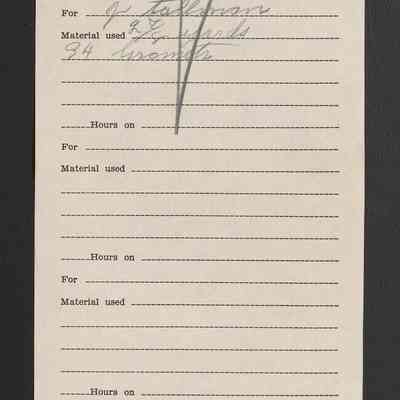 For J tallman
Material used 9 7/8 yards
94 Gromets
Hours on
For
Material used
Hours on
For
Material used
Hours on